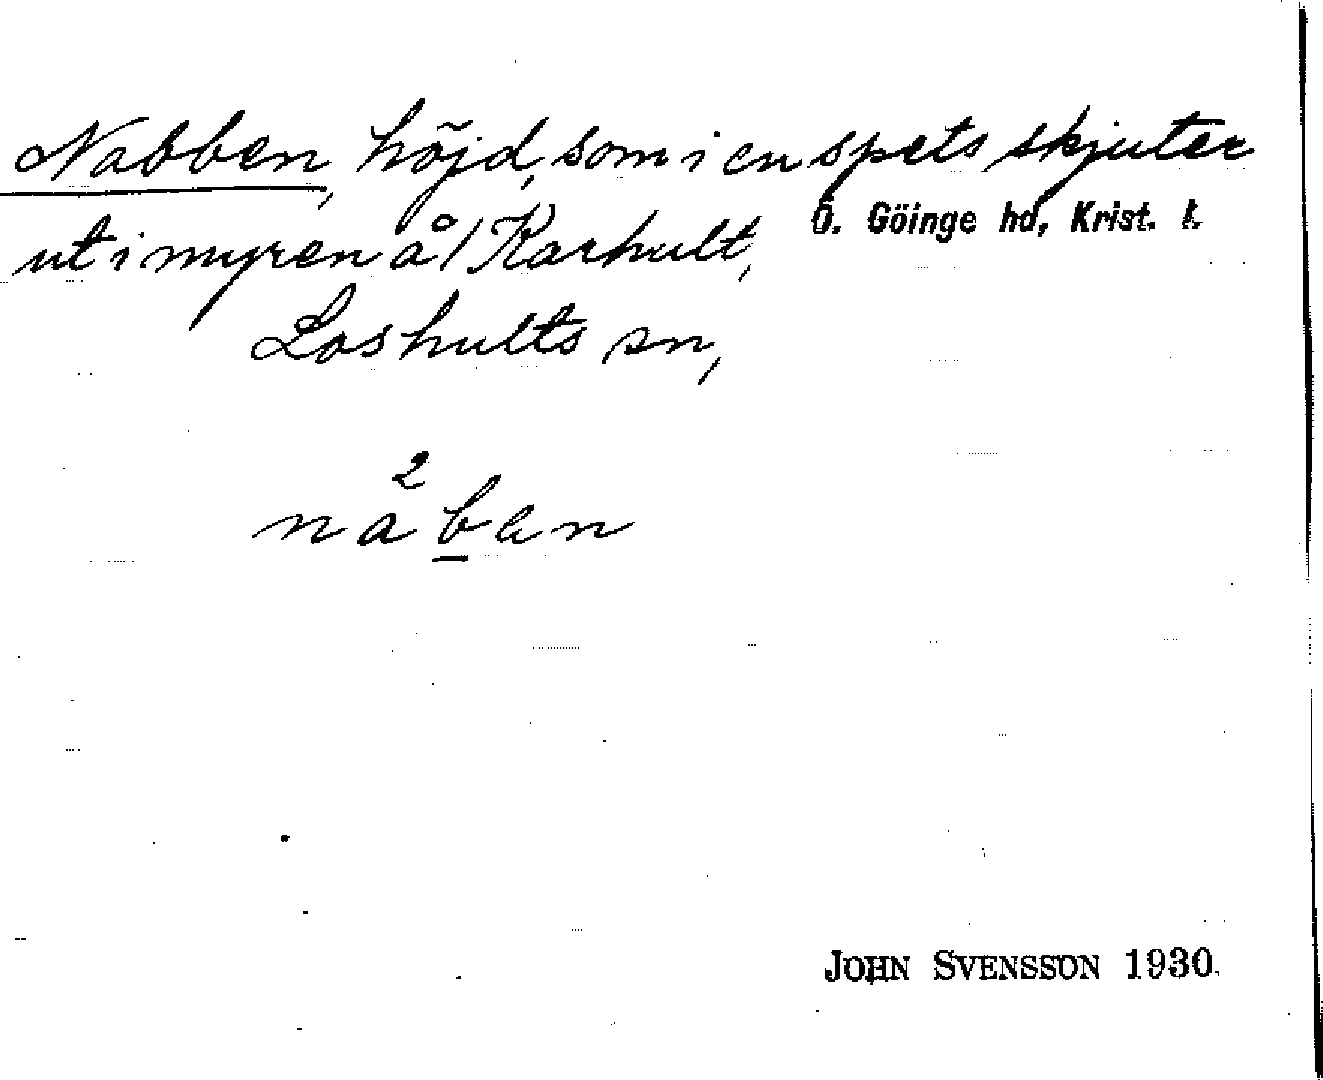 Nabben, höjd, som i en spets skjuter
Ö. Göinge hd, Krist. l.
ut i myren å / Karhult,
Loshults sn,
2
naben
JOHN SVENSSON 1930.